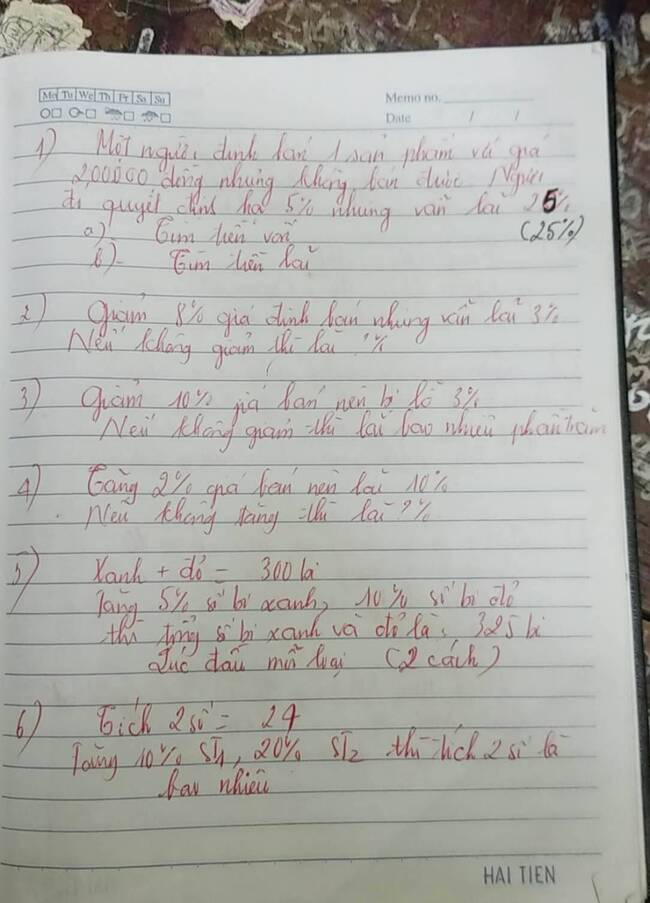 Mo Tu We Th Fr Sa Su
Memo no.
Date / /
1) Một người định bán 1 sản phẩm với giá
200000 đồng nhưng không bán được. Người
đó quyết định hạ 5% nhưng vẫn lãi 25%
(25%)
a)- Tìm tiền vốn
b)- Tìm tiền lãi
2) Giảm 8% giá định bán nhưng vẫn lãi 3%
Nếu không giảm thì lãi ?%
3) Giảm 10% giá bán nên bị lỗ 3%
Nếu không giảm thì lãi bao nhiêu phần trăm
4) Tăng 2% giá bán nên lãi 10%
Nếu không tăng thì lãi ?%
5) Xanh + đỏ = 300 bi
Tăng 5% số bi xanh, 10% số bi đỏ
thì tổng số bi xanh và đỏ là, 325 bi
Lúc đầu mỗi loại (2 cách)
6) Tích 2 số = 24
Tăng 10% ST1, 20% ST2 thì tích 2 số là
bao nhiêu
HAI TIEN